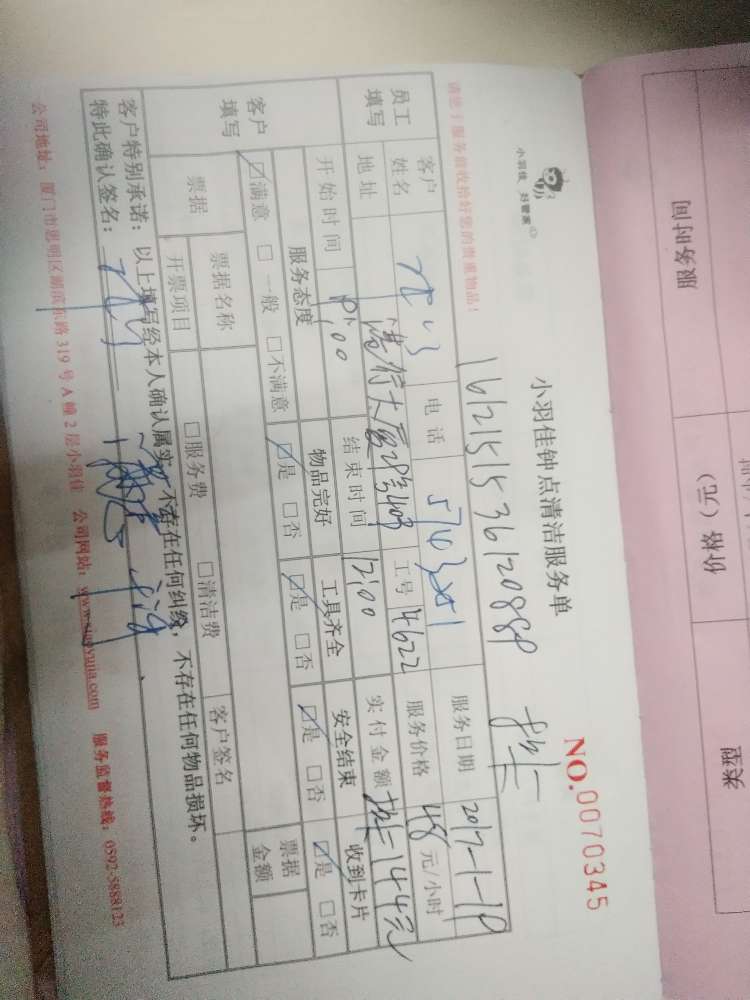 小羽佳 好管家
小羽佳钟点清洁服务单
NO.0070345
请您于服务前收拾好您的贵重物品！
员工填写
客户姓名
电话
服务日期 2017-1-10
地址
工号 4622
服务价格 48 元/小时
开始时间
结束时间 12:00
实付金额 144元
客户填写
服务态度 物品完好 工具齐全 安全结束 收到卡片
☑满意 □一般 □不满意 ☑是 □否 ☑是 □否 ☑是 □否 ☑是 □否
票据
票据名称
客户签名
票据金额
开票项目 □服务费 □清洁费
客户特别承诺：以上填写经本人确认属实，不存在任何纠纷，不存在任何物品损坏。
特此确认签名：
公司地址：厦门市思明区湖滨东路 319 号 A 幢 2 层小羽佳 公司网站：www.xiaoyujia.com 服务监督热线：0592-5888123
服务时间
价格（元）
类型